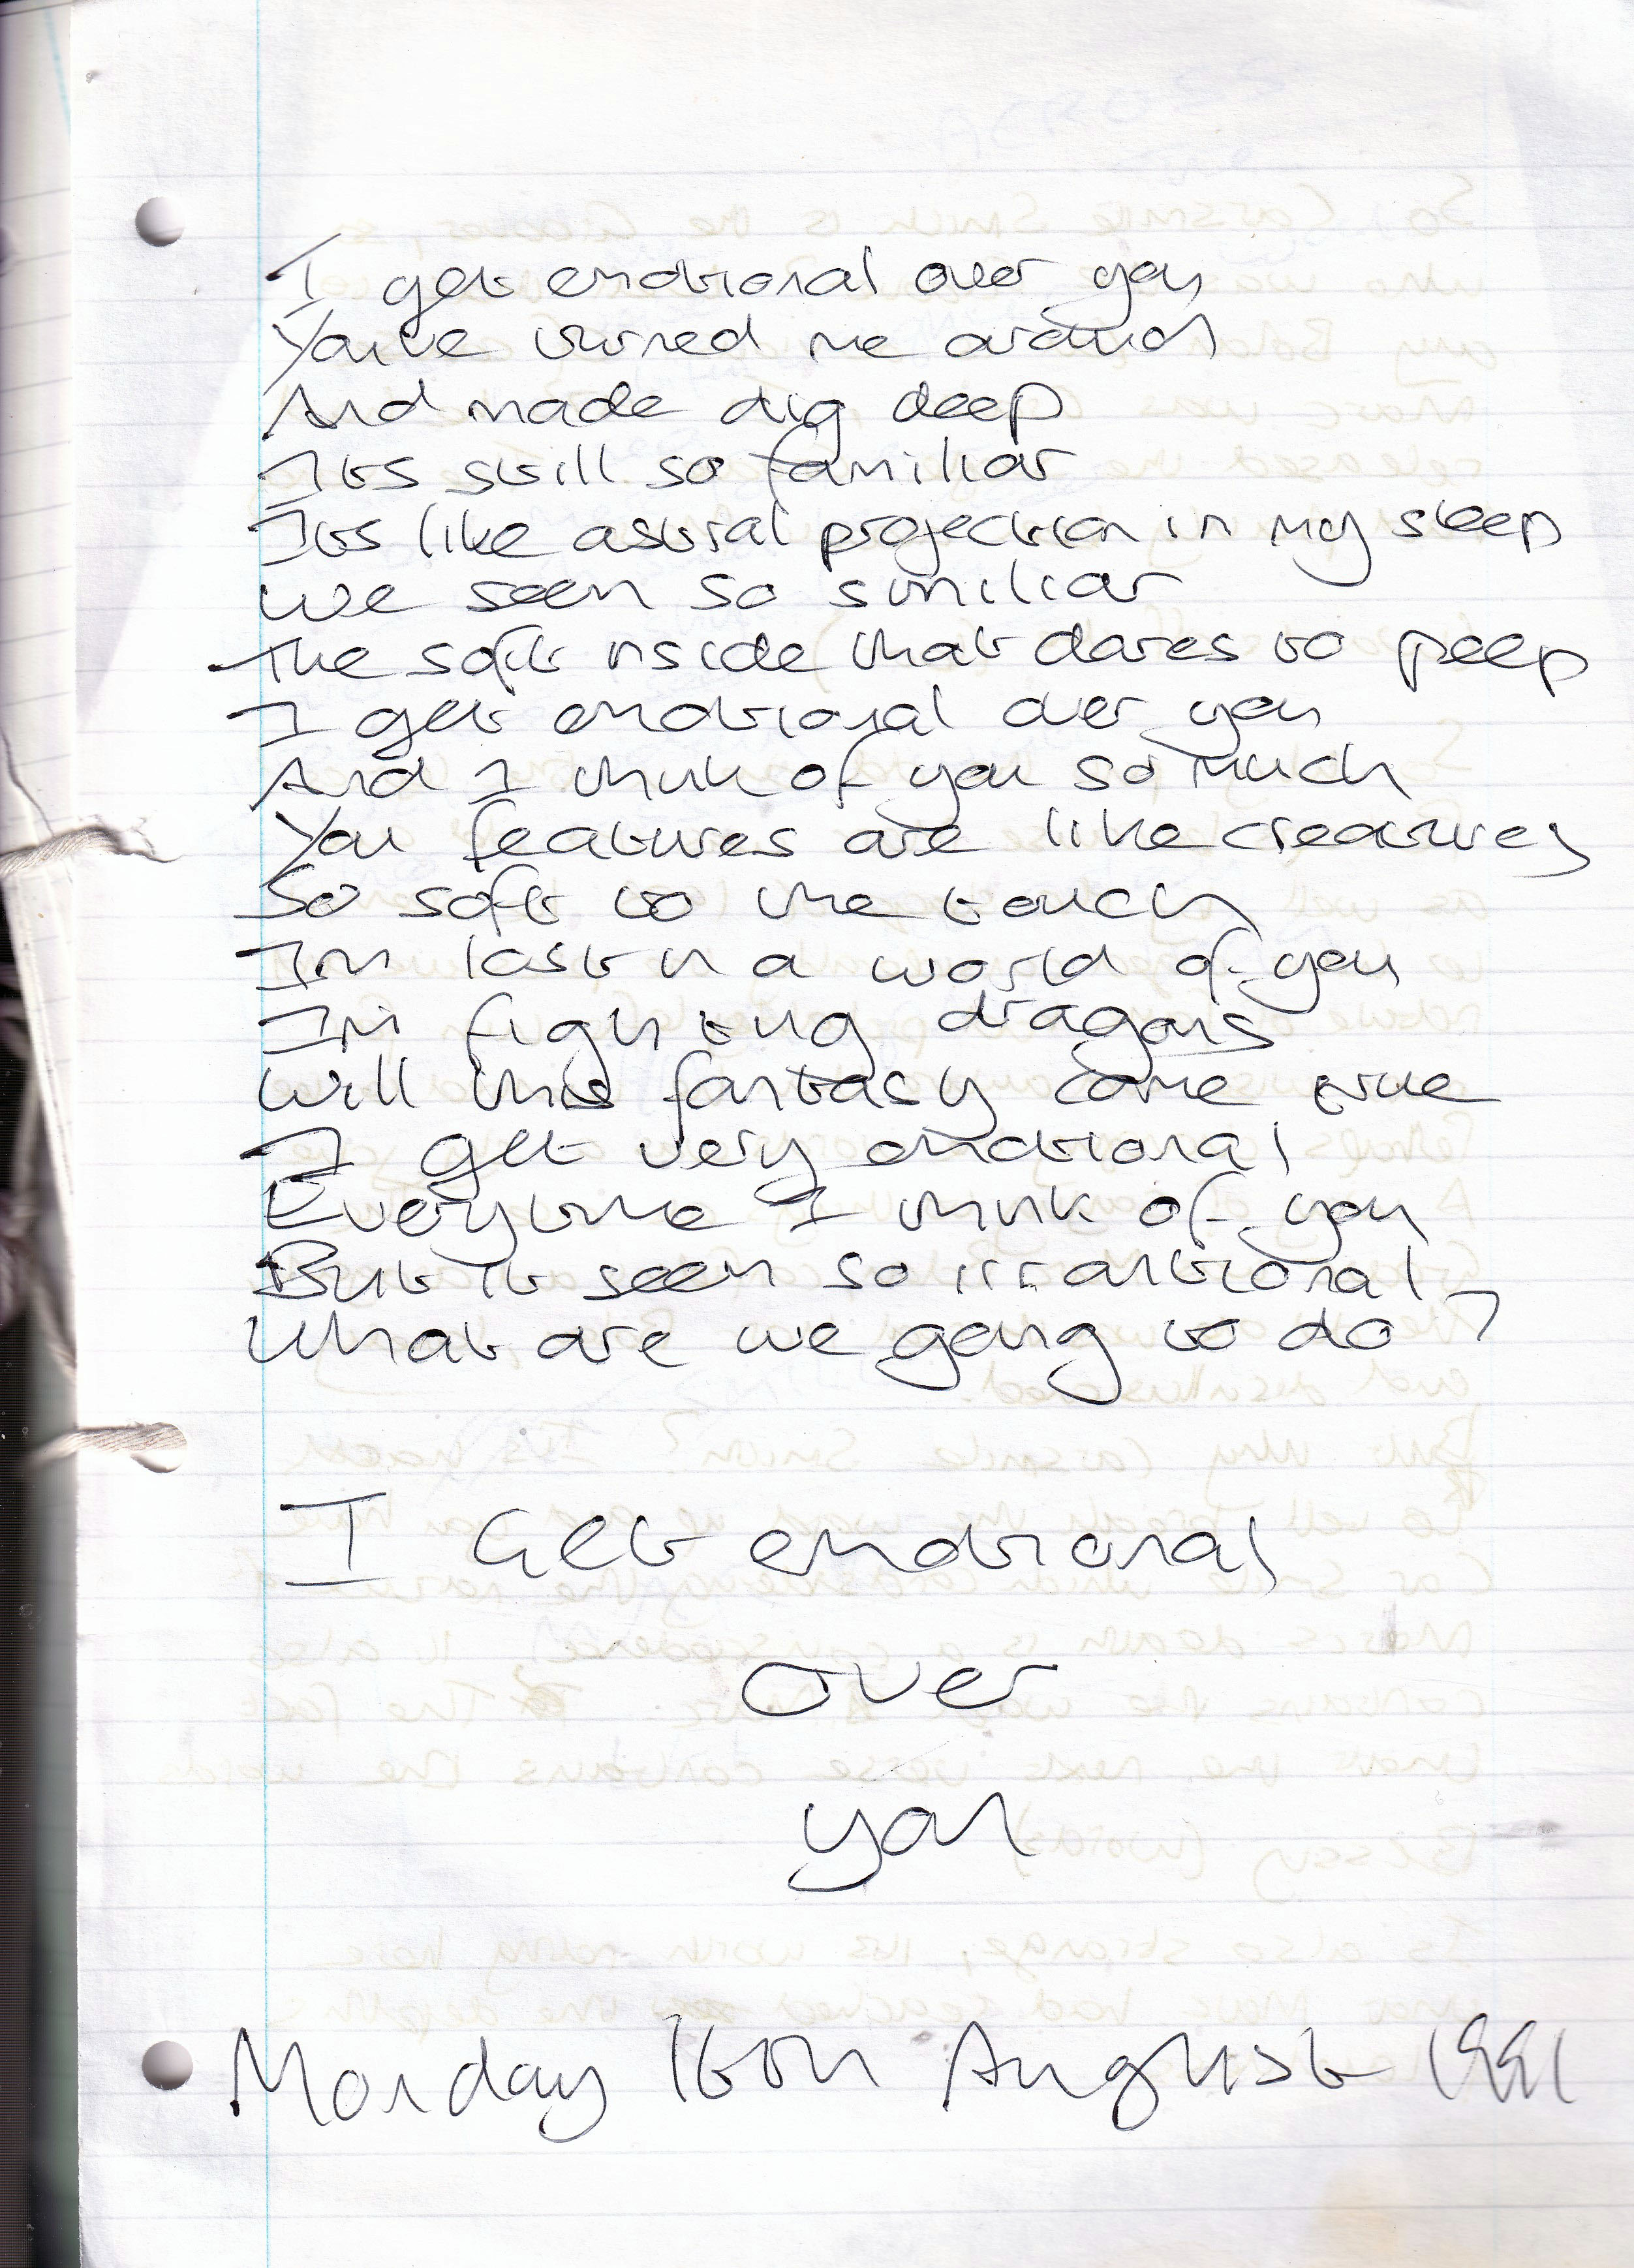 I get emotional over you
You've turned me around
And made dig deep
Its still so familiar
Its like astral projection in my sleep
We seem so similiar
The soft inside that dares to peep
I get emotional over you
And I think of you so much
You features are like creatures
So soft to the touch
Im lost in a world of you
Im fighting dragons
Will this fantasy come true
I get very emotional
Everytime I think of you
But it seem so irrantional
What are we going to do?
I Get emotional
over
you
Monday 16th August 1991